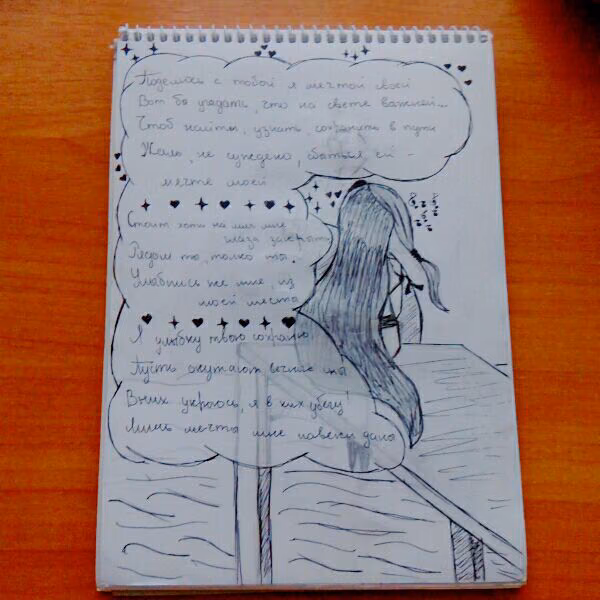 Поделюсь с тобой я мечтой своей
Вот бы угадать, что на свете важней...
Чтоб найти, узнать, сохранить в пути
Жаль, не суждено, сбыться ей -
мечте моей
Стоит хоть на миг мне
глаза закрыть
Рядом ты, только ты.
Улыбнись же мне, из
моей мечты
Я улыбку твою сохраню,
Пусть окутают вечные сны
В них укроюсь, я в них убегу!
Лишь мечта мне навеки дана